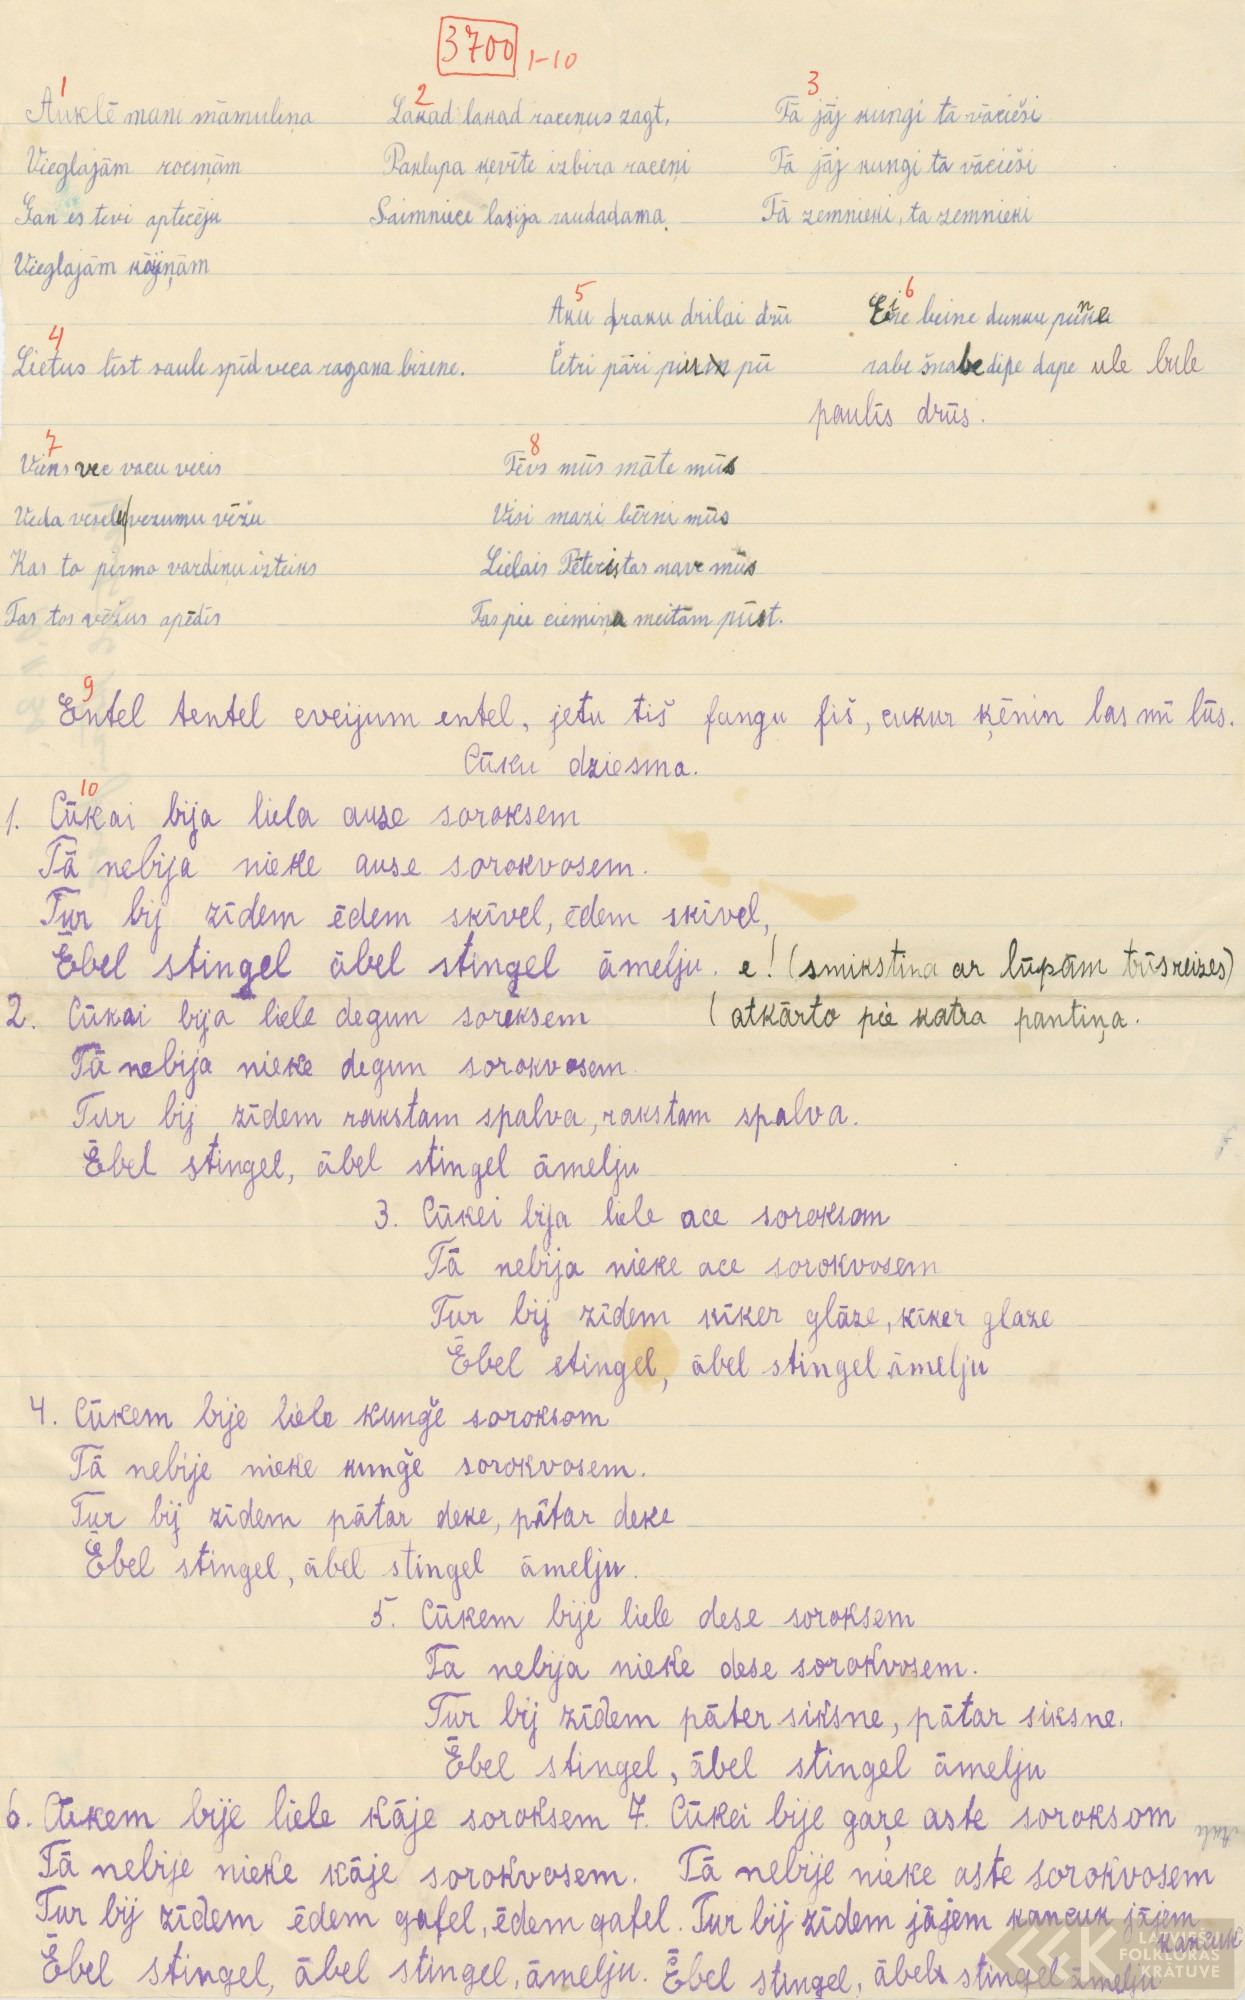 3700 1-10
1
Auklē mani māmuliņa
Vieglajām rociņām
Gan es tevi aptecēju
Vieglajām kājiņām
2
Lakad lakad raceņus zagt,
Paklupa ķevīte izbira raceņi
Saimniece lasija raudadama.
3
Tā jāj kungi tā vācieši
Tā jāj kungi tā vācieši
Tā zemnieki, ta zemnieki
4
Lietus līst saule spīd veca ragana bizene.
5
Aku draku drilai drū
Četri pāri pū
6
beine dunku
rabe šnabe dipe dape ule bule
paulīs drūs.
7
Viens vec vacu vecis
Veda veselu vezumu vēžu
Kas to pirmo vardiņu izteiks
Tas tos vēžus apēdīs
8
Tēvs mūs māte mūs
Visi mazi bērni mūs
Lielais Pēteris tas nave mūs
Tas pie ciemiņa meitām pūst.
9
Entel tentel eveijum entel, jetu tiš fungu fiš, cukur ķēnin las mī lūs.
Cūku dziesma.
10
1. Cūkai bija liela ause soroksem
Tā nebija nieke ause sorokvosem.
Tur bij zīdem ēdem skīvel, ēdem skīvel,
Ēbel stingel ābel stingel āmelju. e! (smikstina ar lūpām trīsreizes)
(atkārto pie katra pantiņa.
2. Cūkai bija liele degun soroksem
Tā nebija nieke degun sorokvosem.
Tur bij zīdem rakstam spalva, rakstam spalva.
Ēbel stingel, ābel stingel āmelju
3. Cūkei bija liele ace soroksom
Tā nebija nieke ace sorokvosem
Tur bij zīdem kīker glāze, kīker glaze
Ēbel stingel, ābel stingel āmelju
4. Cūkem bije liele kunģe soroksom
Tā nebije nieke kunģe sorokvosem.
Tur bij zīdem pātar deke, pātar deke
Ēbel stingel, ābel stingel āmelju.
5. Cūkem bije liele dese soroksem
Ta nebija nieke dese sorokvosem.
Tur bij zīdem pāter siksne, pātar siksne.
Ēbel stingel, ābel stingel āmelju
6. Cūkem bije liele kāje soroksem
Tā nebije nieke kāje sorokvosem.
Tur bij zīdem ēdem gafel, ēdem gafel.
Ēbel stingel, ābel stingel, āmelju.
7. Cūkei bije gaŗe aste soroksom
Tā nebije nieke aste sorokvosem
Tur bij zīdem jājem kancuk jājem
kancuk
Ēbel stingel, ābel stingel āmelju
LATVIEŠU
FOLKLORAS
KRĀTUVE